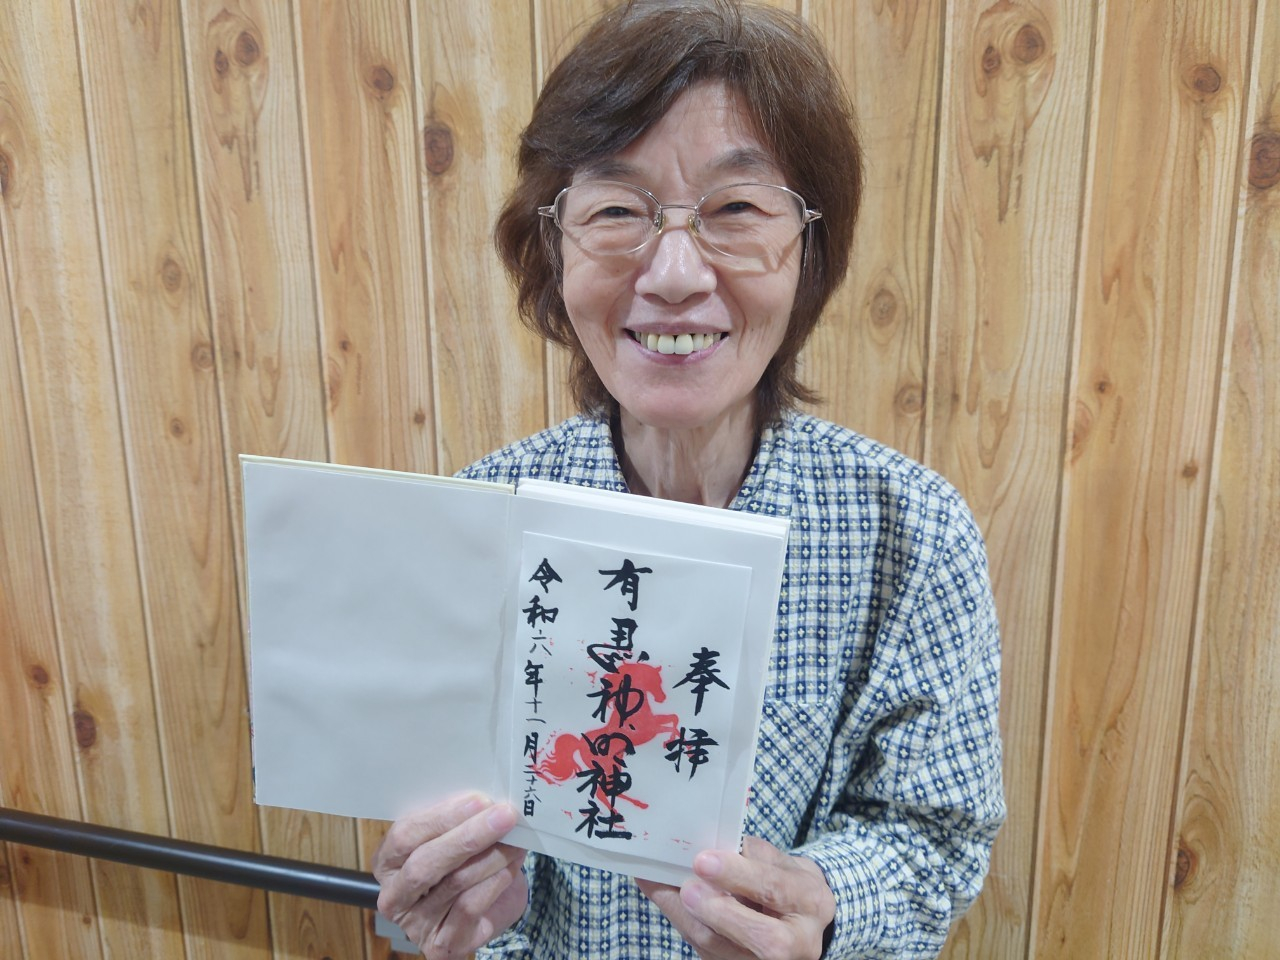 奉拝
有馬神明神社
令和六年十一月二十六日